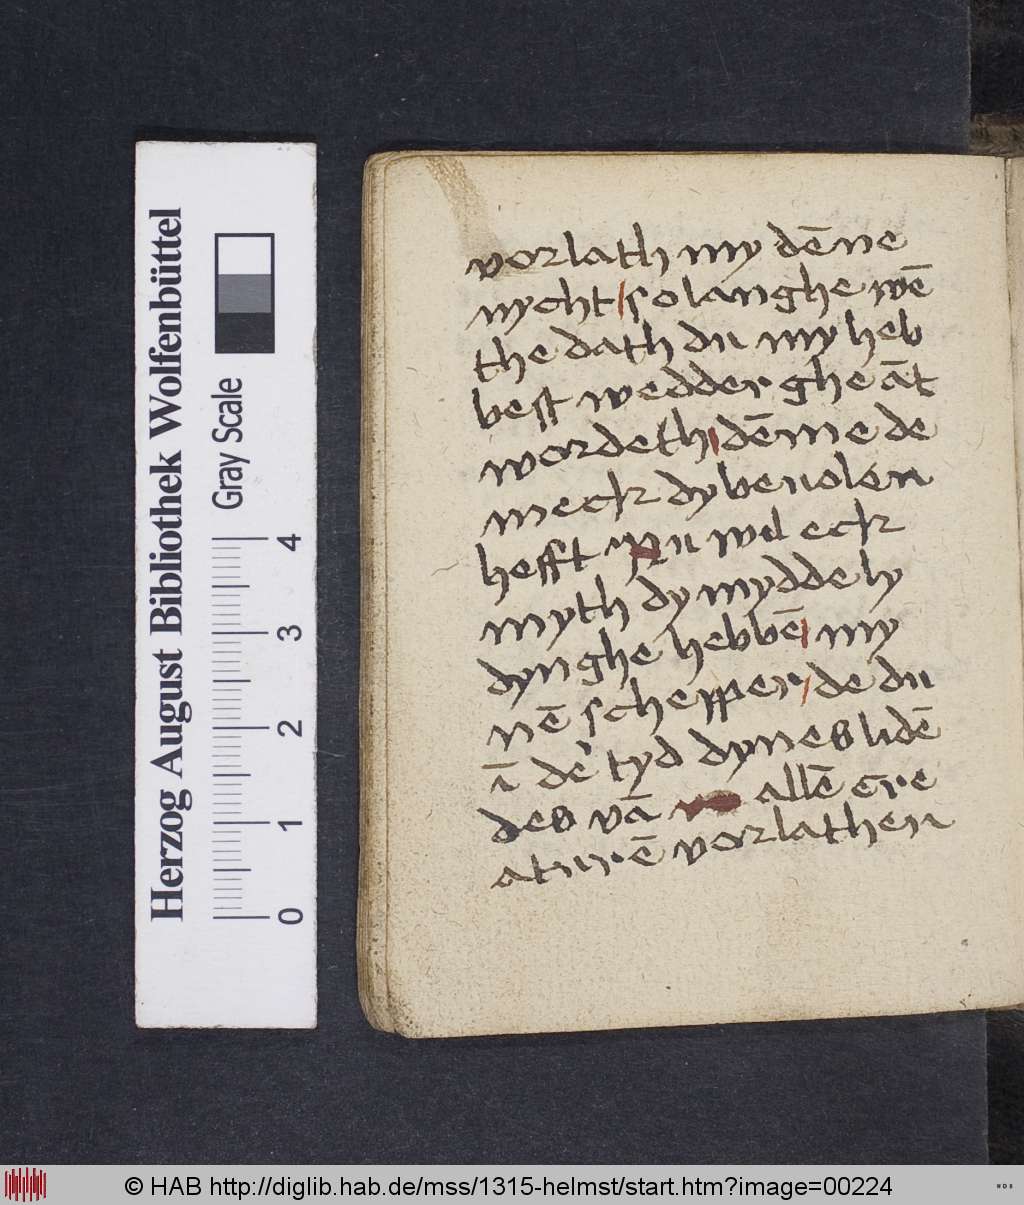 vorlath my dēne
nycht / so langhe wē
the dath du my heb
best wedder ghe āt
wordeth / dēme de
meck dy beuolen
hefft Nu wel eck
myth dy myddely
dynghe hebbē / my
nē schepper / de du
ī de tyd dynes lidē
des vā allē cre
aturē vorlathen
Herzog August Bibliothek Wolfenbüttel
Gray Scale
0 1 2 3 4
© HAB http://diglib.hab.de/mss/1315-helmst/start.htm?image=00224